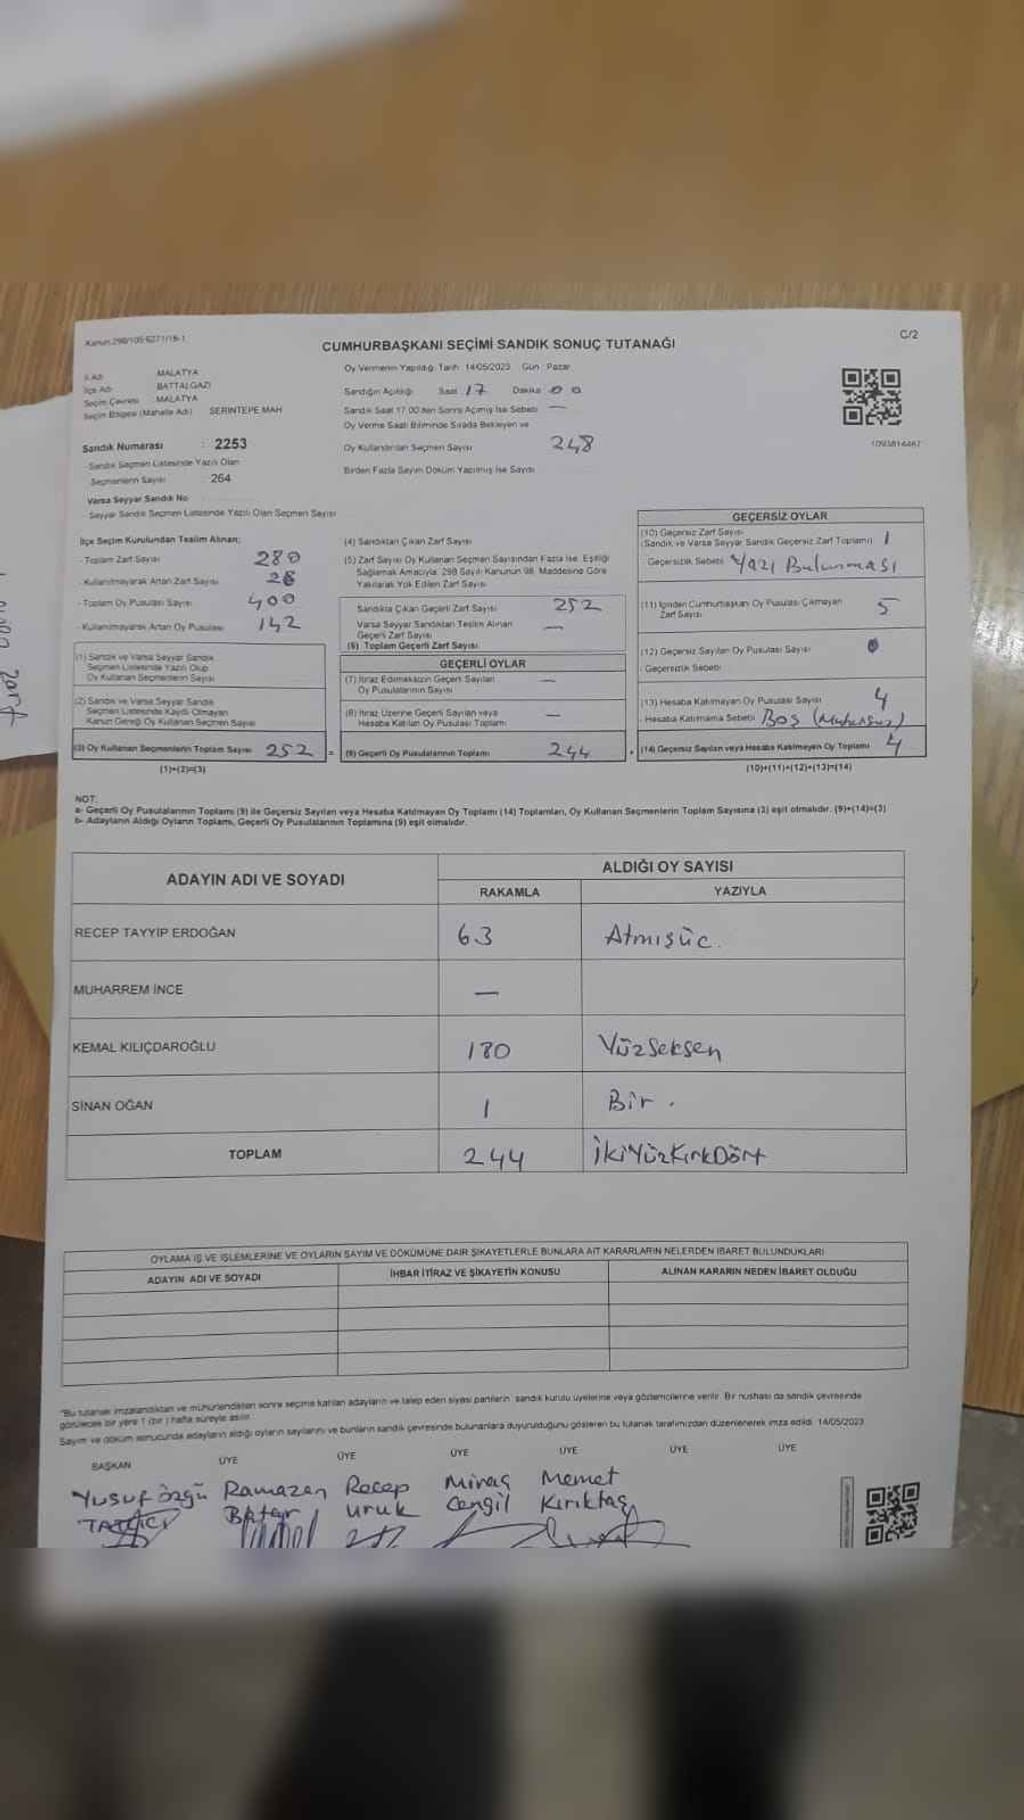 Kanun 298/105-6271/16-1
C/2
CUMHURBAŞKANI SEÇİMİ SANDIK SONUÇ TUTANAĞI
İl Adı MALATYA
İlçe Adı BATTALGAZİ
Seçim Çevresi MALATYA
Seçim Bölgesi (Mahalle Adı) SERİNTEPE MAH
Sandık Numarası : 2253
- Sandık Seçmen Listesinde Yazılı Olan
Seçmenlerin Sayısı 264
Varsa Seyyar Sandık No
- Seyyar Sandık Seçmen Listesinde Yazılı Olan Seçmen Sayısı
Oy Vermenin Yapıldığı Tarih 14/05/2023 Gün Pazar
Sandığın Açıldığı Saat 17 Dakika 00
Sandık Saat 17.00'den Sonra Açılmış İse Sebebi —
Oy Verme Saati Bitiminde Sırada Bekleyen ve
Oy Kullandırılan Seçmen Sayısı 248
Birden Fazla Sayım Döküm Yapılmış İse Sayısı
İlçe Seçim Kurulundan Teslim Alınan;
- Toplam Zarf Sayısı 280
- Kullanılmayarak Artan Zarf Sayısı 28
- Toplam Oy Pusulası Sayısı 400
- Kullanılmayarak Artan Oy Pusulası 142
(1) Sandık ve Varsa Seyyar Sandık
Seçmen Listesinde Yazılı Olup
Oy Kullanan Seçmenlerin Sayısı
(2) Sandık ve Varsa Seyyar Sandık
Seçmen Listesinde Kayıtlı Olmayan
Kanun Gereği Oy Kullanan Seçmen Sayısı
(3) Oy Kullanan Seçmenlerin Toplam Sayısı 252 =
(1)+(2)=(3)
(4) Sandıktan Çıkan Zarf Sayısı
(5) Zarf Sayısı Oy Kullanan Seçmen Sayısından Fazla İse, Eşitliği
Sağlamak Amacıyla, 298 Sayılı Kanunun 98. Maddesine Göre
Yakılarak Yok Edilen Zarf Sayısı
Sandıkta Çıkan Geçerli Zarf Sayısı 252
Varsa Seyyar Sandıktan Teslim Alınan
Geçerli Zarf Sayısı —
(6) Toplam Geçerli Zarf Sayısı
GEÇERLİ OYLAR
(7) İtiraz Edilmeksizin Geçerli Sayılan
Oy Pusulalarının Sayısı —
(8) İtiraz Üzerine Geçerli Sayılan veya
Hesaba Katılan Oy Pusulası Toplamı —
(9) Geçerli Oy Pusulalarının Toplamı 244 +
GEÇERSİZ OYLAR
(10) Geçersiz Zarf Sayısı
(Sandık ve Varsa Seyyar Sandık Geçersiz Zarf Toplamı) 1
Geçersizlik Sebebi Yazı Bulunması
(11) İçinden Cumhurbaşkanı Oy Pusulası Çıkmayan
Zarf Sayısı 5
(12) Geçersiz Sayılan Oy Pusulası Sayısı 0
- Geçersizlik Sebebi
(13) Hesaba Katılmayan Oy Pusulası Sayısı 4
- Hesaba Katılmama Sebebi Boş (Mühürsüz)
(14) Geçersiz Sayılan veya Hesaba Katılmayan Oy Toplamı 4
(10)+(11)+(12)+(13)=(14)
NOT:
a- Geçerli Oy Pusulalarının Toplamı (9) ile Geçersiz Sayılan veya Hesaba Katılmayan Oy Toplamı (14) Toplamları, Oy Kullanan Seçmenlerin Toplam Sayısına (3) eşit olmalıdır. (9)+(14)=(3)
b- Adayların Aldığı Oyların Toplamı, Geçerli Oy Pusulalarının Toplamına (9) eşit olmalıdır.
ADAYIN ADI VE SOYADI
ALDIĞI OY SAYISI
RAKAMLA YAZIYLA
RECEP TAYYİP ERDOĞAN 63 Atmışüç.
MUHARREM İNCE —
KEMAL KILIÇDAROĞLU 180 Yüzseksen
SİNAN OĞAN 1 Bir.
TOPLAM 244 İkiYüzKırkDört
OYLAMA İŞ VE İŞLEMLERİNE VE OYLARIN SAYIM VE DÖKÜMÜNE DAİR ŞİKAYETLERLE BUNLARA AİT KARARLARIN NELERDEN İBARET BULUNDUKLARI
ADAYIN ADI VE SOYADI İHBAR İTİRAZ VE ŞİKAYETİN KONUSU ALINAN KARARIN NEDEN İBARET OLDUĞU
"Bu tutanak imzalandıktan ve mühürlendikten sonra seçime katılan adayların ve talep eden siyasi partilerin sandık kurulu üyelerine veya gözlemcilerine verilir. Bir nüshası da sandık çevresinde
görülecek bir yere 1 (bir) hafta süreyle asılır.
Sayım ve döküm sonucunda adayların aldığı oyların sayılarını ve bunların sandık çevresinde bulunanlara duyurulduğunu gösteren bu tutanak tarafımızdan düzenlenerek imza edildi. 14/05/2023
BAŞKAN ÜYE ÜYE ÜYE ÜYE ÜYE ÜYE
Yusuf Özgü Ramazan Recep Miraç Memet
TATCICI Uruk Cengil Kırıktaş